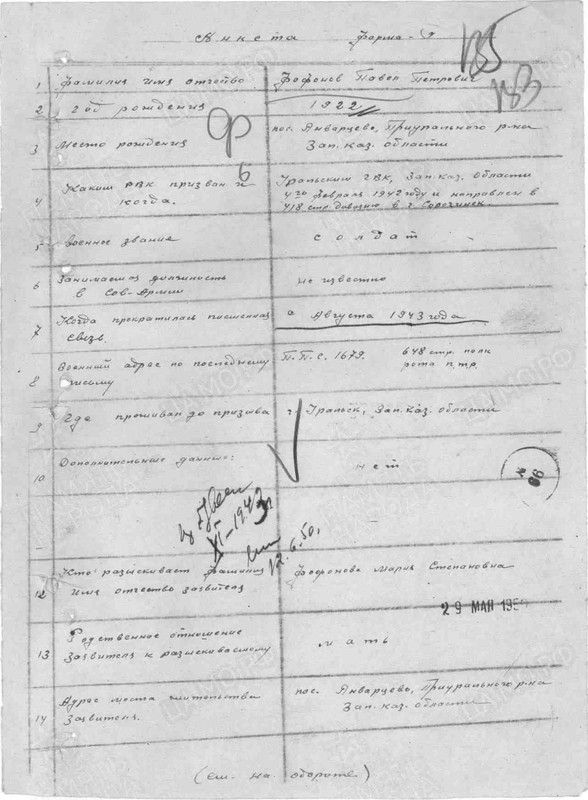 Анкета Форма-
185
183
1 Фамилия имя отчество Фофонов Павел Петрович
2 Год рождения 1922
Ф
3 Место рождения пос. Январцево, Приурального р-на
Зап. каз. области
6
4 Каким РВК призван и когда. Уральским ГВК, Зап. каз. области
4го февраля 1942 году и направлен в
418 стр. дивизию в г. Сорочинск
5 Военное звание солдат
6 Занимаем. должность не известно
в Сов-Армии
7 Когда прекратилась письменная Августа 1943 года
связь.
8 Военный адрес по последнему П.П.С. 1679. 648 стр. полк
письму рота п.тр.
9 Где проживал до призыва г. Уральск, Зап. Каз. области
10 Дополнительные данные: нет
XI-1943
12.6.50.
12 Кто разыскивает фамилия Фофонова Мария Степановна
имя отчество заявителя
29 МАЯ 195
13 Родственное отношение мать
заявителя к разыскиваемому
14 Адрес места жительства пос. Январцево, Приурального р-на
заявителя. Зап. каз. области
(см. на обороте)